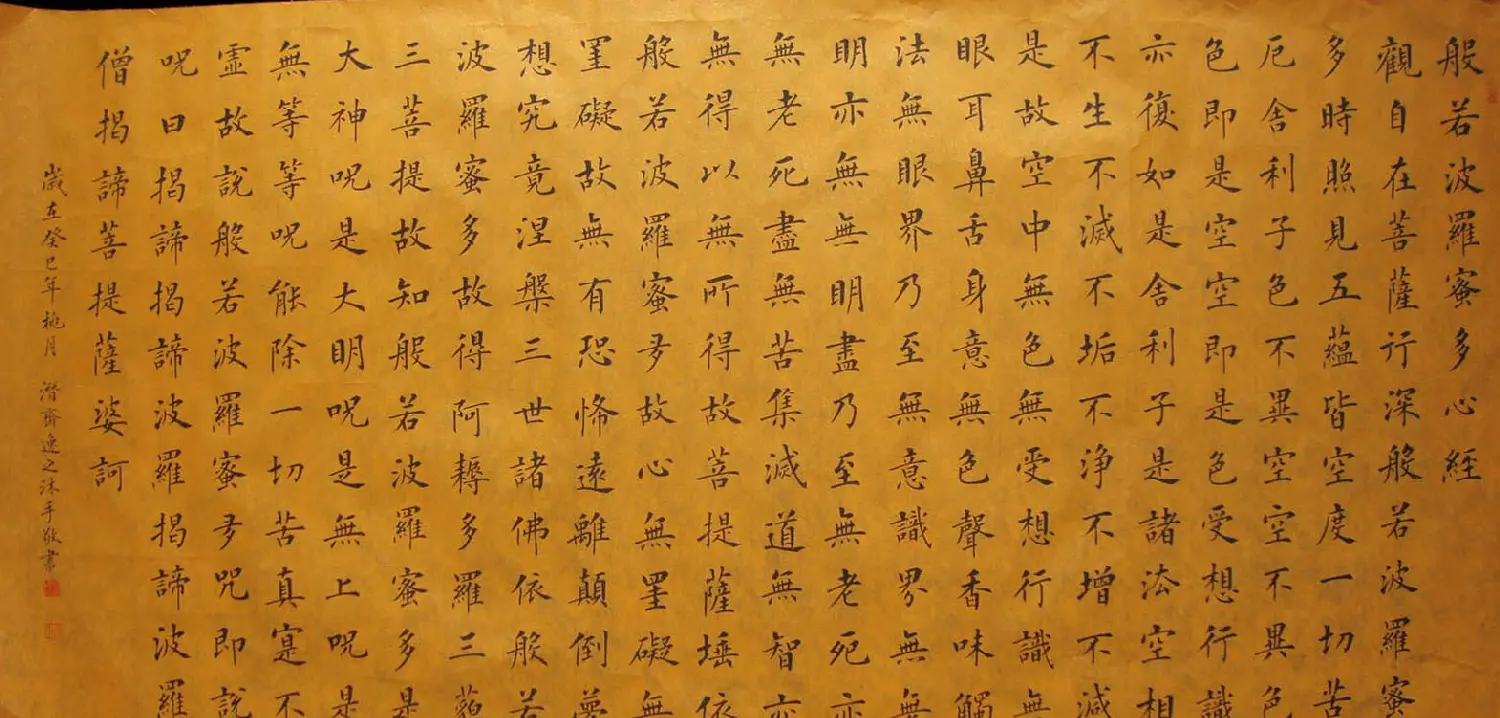 般若波羅蜜多心経
觀自在菩薩行深般若波羅蜜
多時照見五蘊皆空度一切苦
厄舍利子色不異空空不異色
色即是空空即是色受想行識
亦復如是舍利子是諸法空相
不生不滅不垢不浄不增不減
是故空中無色無受想行識無
眼耳鼻舌身意無色聲香味觸
法無眼界乃至無意識界無無
明亦無無明盡乃至無老死亦
無老死盡無苦集滅道無智亦
無得以無所得故菩提薩埵依
般若波羅蜜多故心無罣礙無
罣礙故無有恐怖遠離顛倒夢
想究竟涅槃三世諸佛依般若
波羅蜜多故得阿耨多羅三藐
三菩提故知般若波羅蜜多是
大神呪是大明呪是無上呪是
無等等呪能除一切苦真寔不
虛故說般若波羅蜜多咒即說
呪曰揭諦揭諦波羅揭諦波羅
僧揭諦菩提薩婆訶
歲在癸巳年桃月 潛齋逸之沐手敬書